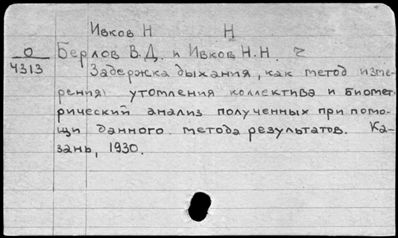 Ивков Н Н
О
4313
Берлов В.Д. и Ивков Н.Н.
Задержка дыхания, как метод изме-
рения утомления коллектива и биомет-
рический анализ полученных при помо-
щи данного метода результатов. Ка-
зань, 1930.